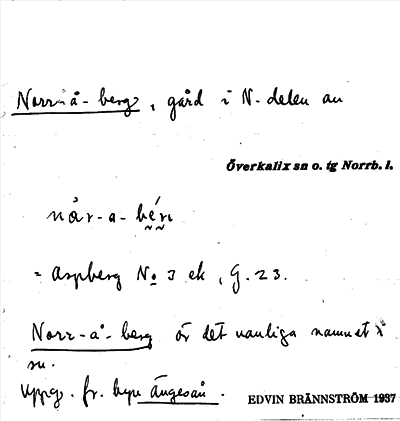 Norr-å-berg, gård i N. delen av
Överkalix sn o. tg Norrb. l.
når-a-bérι
= Aspberg No 3 ek, G. 23.
Norr-å-berg är det vanliga namnet i
sn.
Uppg. fr. byn Ängesån.
EDVIN BRÄNNSTRÖM 1937